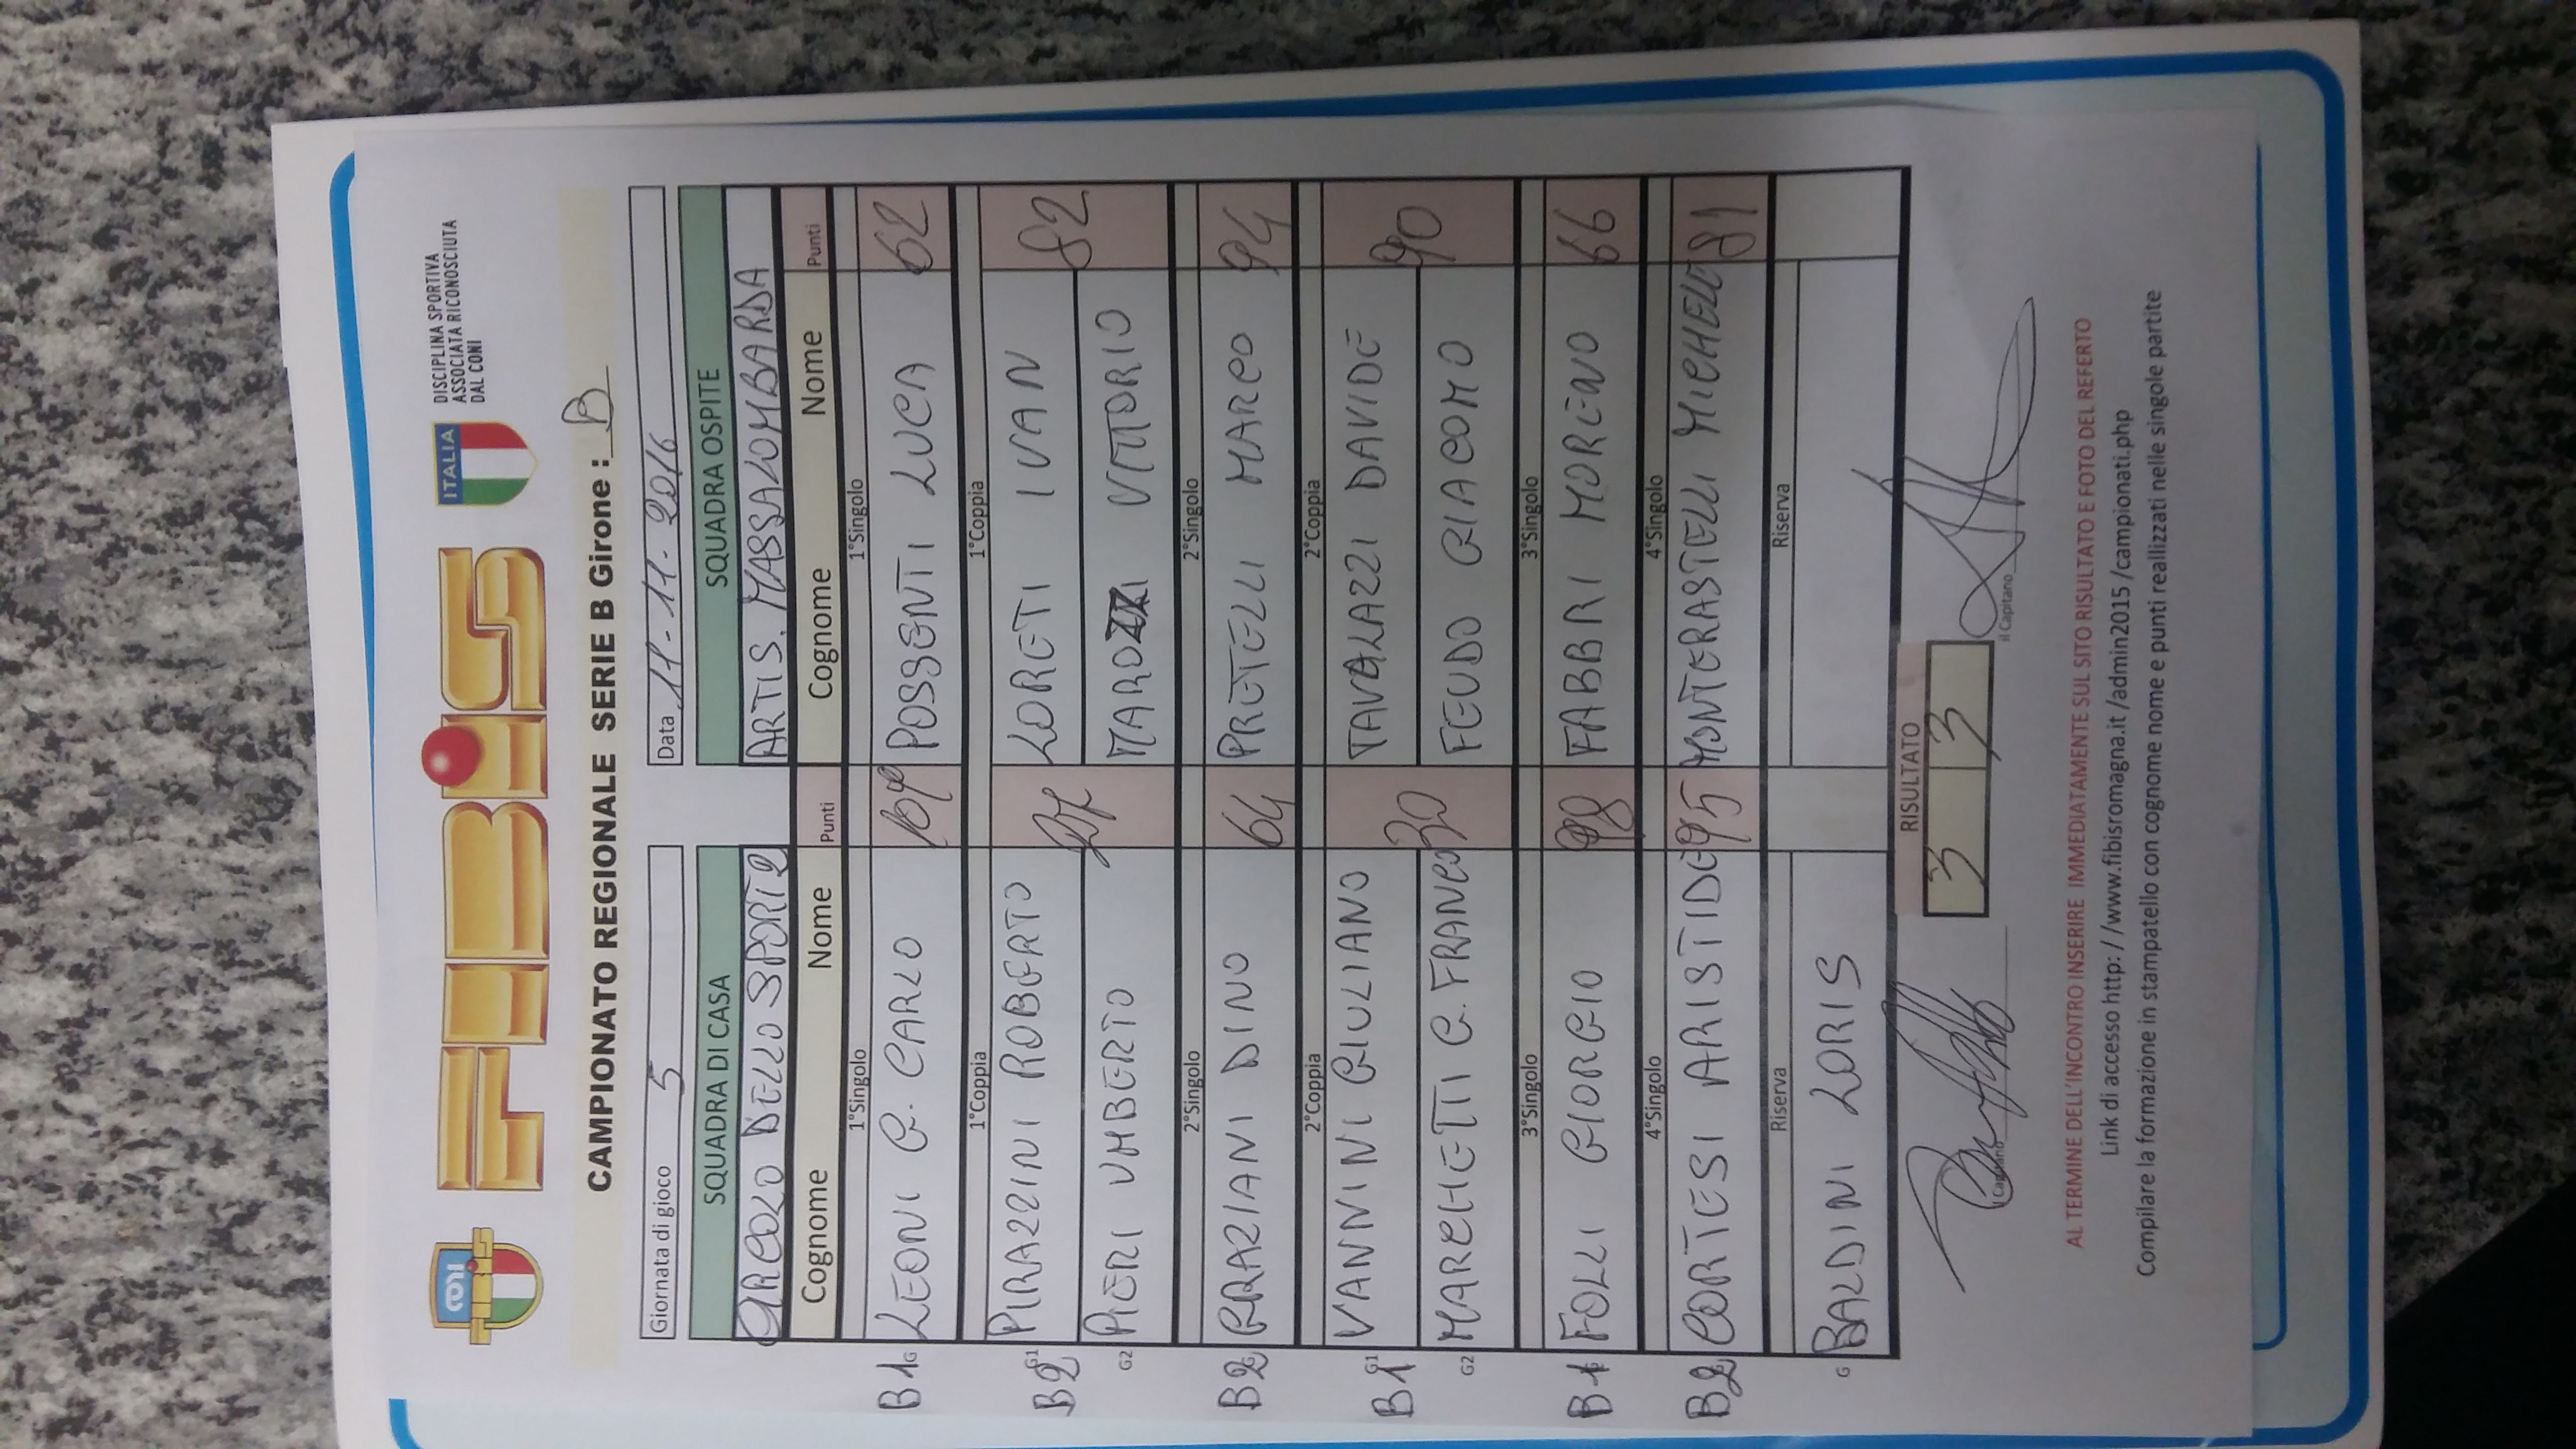 FIBIS
ITALIA
DISCIPLINA SPORTIVA
ASSOCIATA RICONOSCIUTA
DAL CONI
CAMPIONATO REGIONALE SERIE B Girone : B
Giornata di gioco 5 Data 11-11-2016
SQUADRA DI CASA SQUADRA OSPITE
CIRCOLO DELLO SPORT ARTIS. MASSALOMBARDA
Cognome Nome Punti Cognome Nome Punti
1°Singolo 1°Singolo
B1 G LEONI G. CARLO POSSENTI LUCA 62
1°Coppia 1°Coppia
B2 G1 PIRAZZINI ROBERTO LORETI IVAN 82
G2 PIERI UMBERTO VITTORIO
2°Singolo 2°Singolo
B2 GRAZIANI DINO 64 PRETELLI MARCO 94
2°Coppia 2°Coppia
B1 G1 VANNINI GIULIANO 30 TAVALAZZI DAVIDE 90
G2 MARCHETTI G. FRANCO FEUDO GIACOMO
3°Singolo 3°Singolo
B1 FOLLI GIORGIO 98 FABBRI MORENO 66
4°Singolo 4°Singolo
B2 CORTESI ARISTIDE 95 MONTERASTELLI MICHELE 81
Riserva Riserva
G BALDINI LORIS
RISULTATO
3 3
il Capitano il Capitano
AL TERMINE DELL'INCONTRO INSERIRE IMMEDIATAMENTE SUL SITO RISULTATO E FOTO DEL REFERTO
Link di accesso http: / /www.fibisromagna.it /admin2015 /campionati.php
Compilare la formazione in stampatello con cognome nome e punti reallizzati nelle singole partite